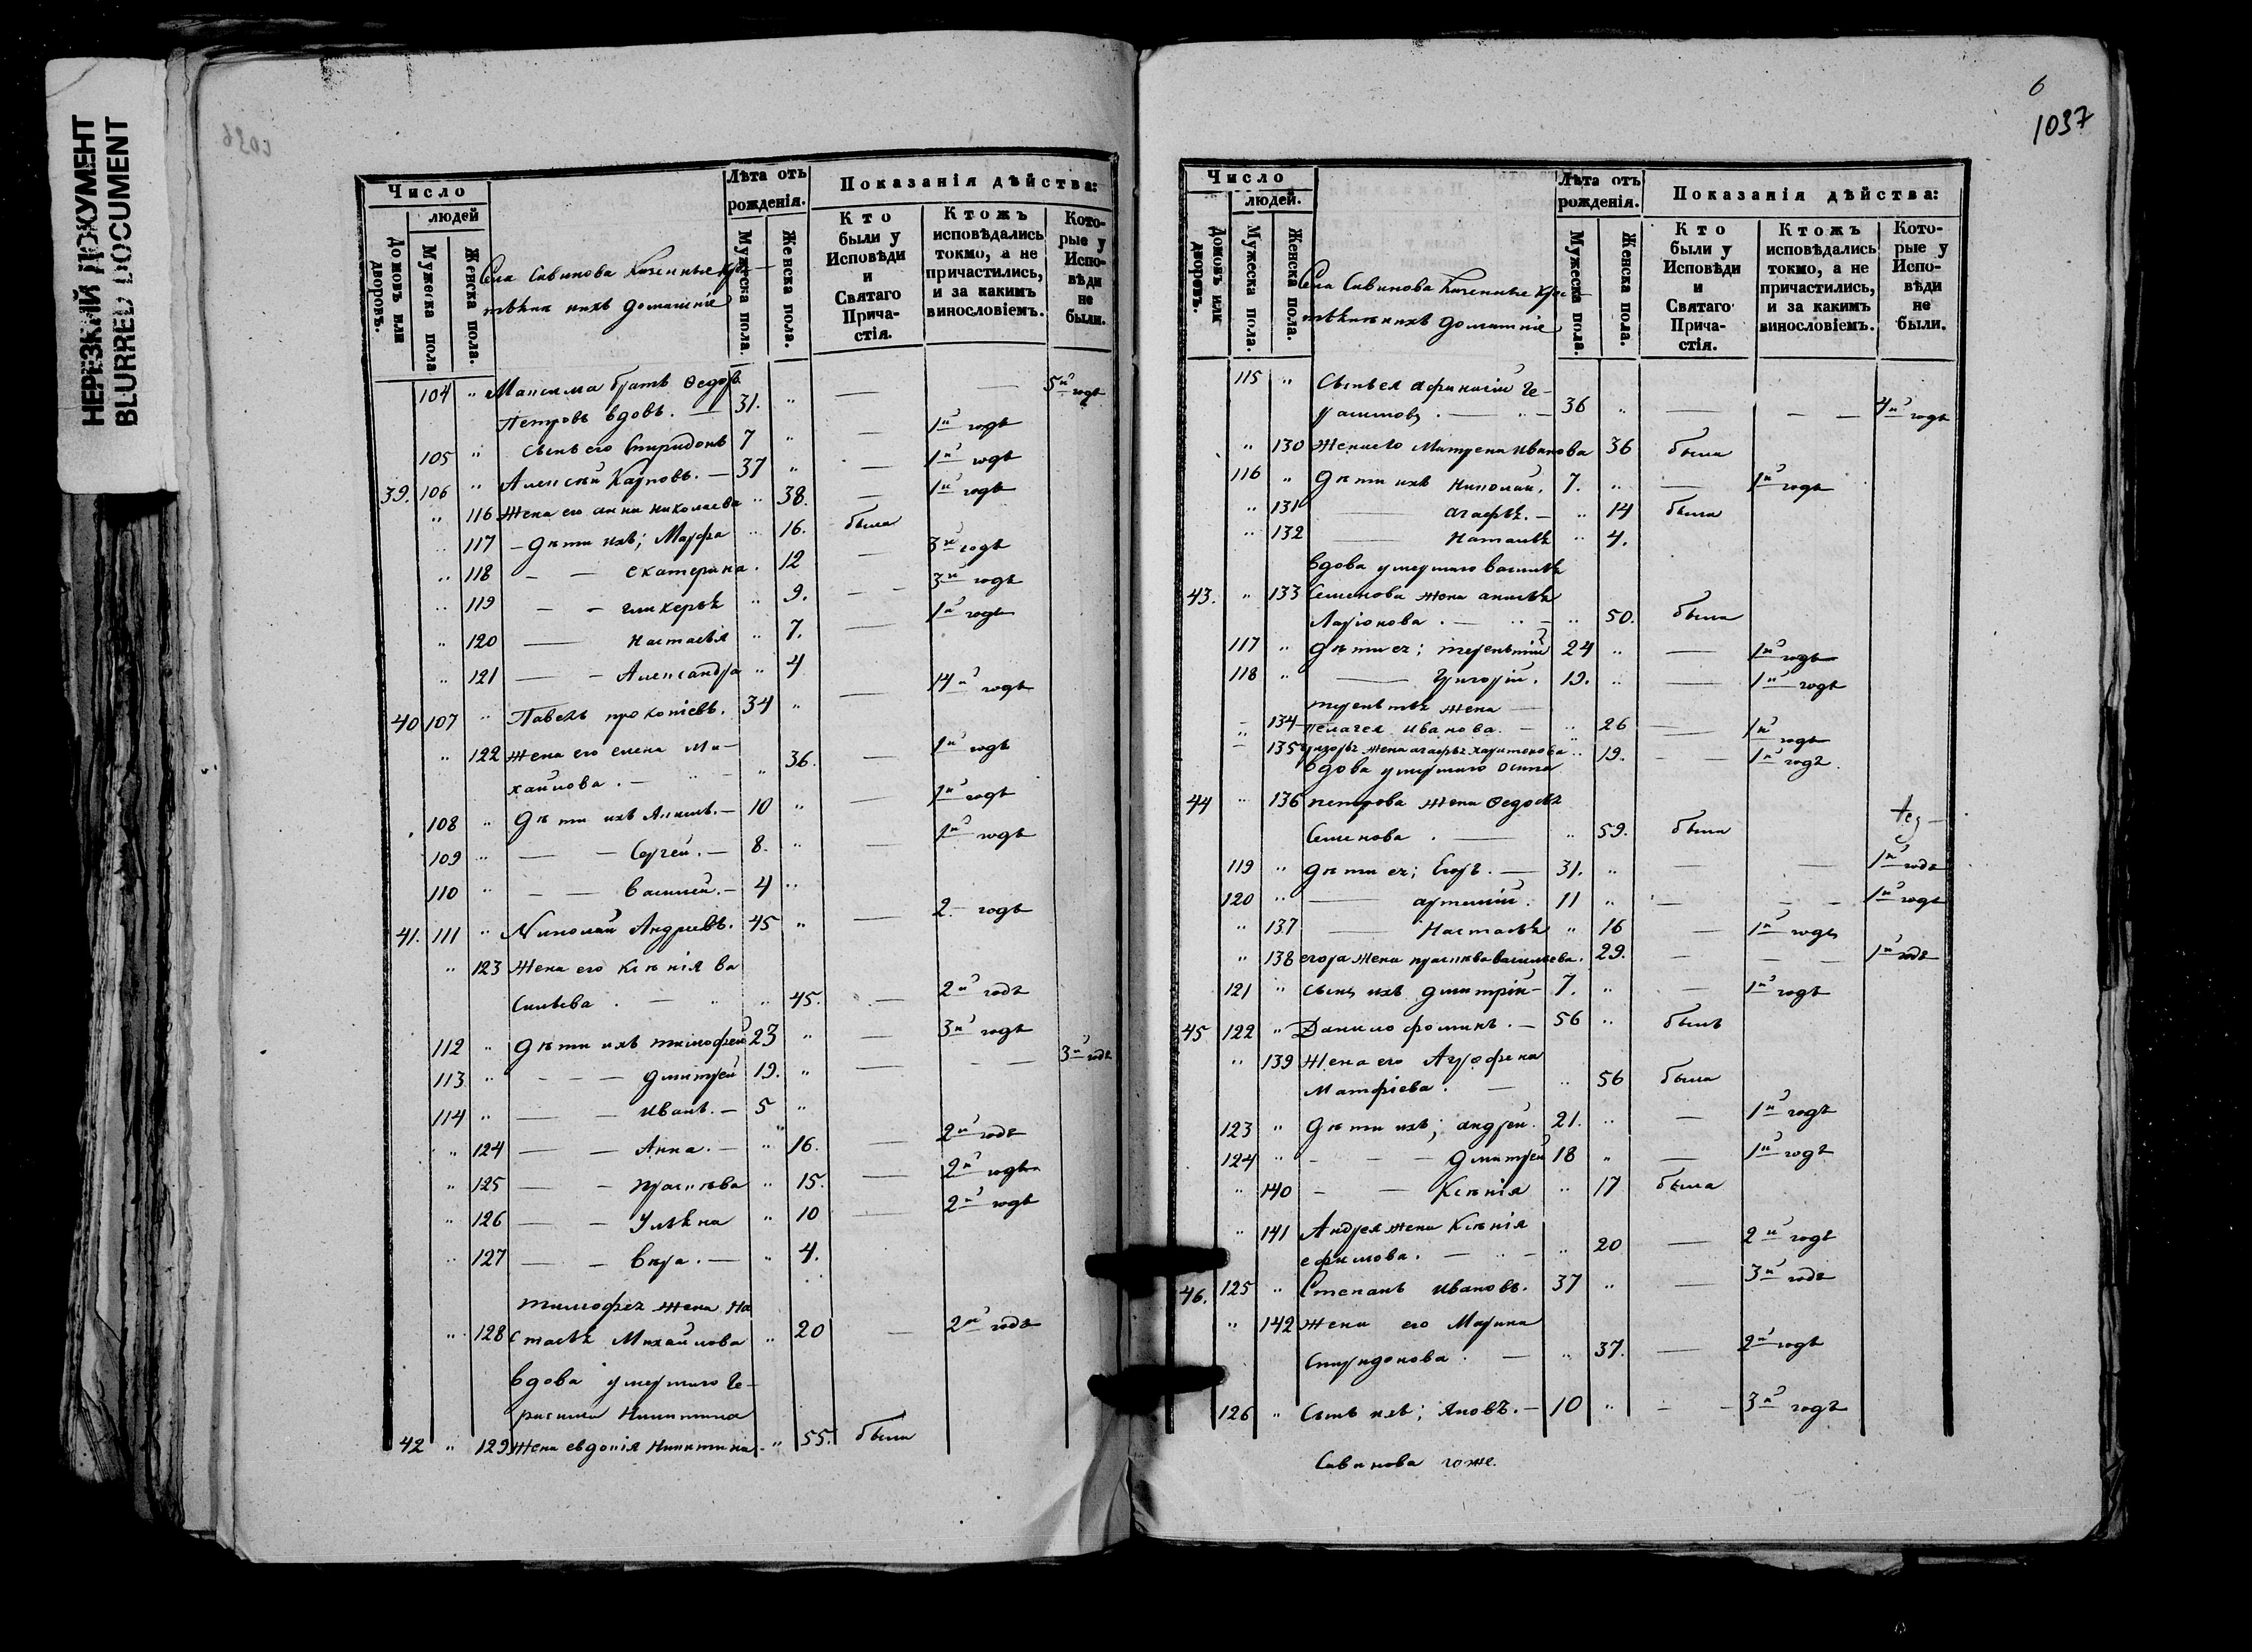 НЕРЕЗКИЙ ДОКУМЕНТ
BLURRED DOCUMENT
Число
людей
Домовъ или дворовъ.
Мужеска пола
Женска пола.
Села Савинова Казенные Кре-
стьяне и ихъ домашніе
Лѣта отъ рожденія.
Мужеска пола.
Женска пола.
Показанія дѣйства:
Кто были у Исповѣди и Святаго Прича-стія.
Ктожъ исповѣдались токмо, а не причастились, и за какимъ винословіемъ.
Кото-рые у Испо-вѣди не были.
104 " Максима братъ Ѳедоръ
Петровъ вдовъ. — 31. " — — 5й годъ
105 " сынъ его Спиридонъ 7 " — 1й годъ
39. 106 " Алексѣй Карповъ. — 37 " — 1й годъ
" 116 Жена его анна николаева " 38. — 1й годъ
" 117 — дѣти ихъ; Марфа " 16. была
" 118 — — екатерина. 12 — 3й годъ
" 119 — — гликерья " 9. — — 3й годъ
" 120 — настасья " 7. — 1й годъ
" 121 — — Александра " 4
40 107 " Павелъ прокопіевъ. 34 " — 14й годъ
" 122 Жена его елена Ми-
хайлова. — " 36. — 1й годъ
108 " дѣти ихъ Акимъ. — 10 " — 1й годъ
109 " — — Сергей. — 8. " — 1й годъ
110 " — — василей. — 4 "
41. 111 " Николай Андреевъ. 45 " — 2. годъ
" 123 Жена его Ксѣнія ва
сильева. — " 45. — 2й годъ
112 " дѣти ихъ тимофей 23 " — 3й годъ
113 " — — дмитрей 19. " — — 3й годъ
114 " — — иванъ. — 5 "
" 124 — — Анна. — " 16. — 2й годъ
" 125 — — прасковья " 15. — 2й годъ
" 126 — — Ульяна " 10 — 2й годъ
" 127 — — вѣра. — " 4.
тимофея жена на
" 128 стасья Михайлова " 20 — 2й годъ
вдова умершаго Ге-
расима Никитина
42 " 129 жена евдокія Никитина — " 55. была
6
1037
Число
людей.
Домовъ или дворовъ.
Мужеска пола.
Женска пола.
Села Савинова Казенные Кре-
стьяне и ихъ домашніе
Лѣта отъ рожденія.
Мужеска пола.
Женска пола.
Показанія дѣйства:
Кто были у Исповѣди и Святаго Прича-стія.
Ктожъ исповѣдались токмо, а не причастились, и за какимъ винословіемъ.
Кото-рые у Испо-вѣди не были.
115 " Сынъ ея афанасій Ге-
расимовъ. — 36 " — — — 4й годъ
" 130 Жена его Матрена иванова 36 была
116 " дѣти ихъ николай. 7. " — 1й годъ
" 131 — агафья. — " 14 была
" 132 — наталья " 4.
вдова умершаго василья
43. " 133 Семенова жена акилина
Ларіонова. — " 50. была
117 " дѣти ея; терентій 24 " — 1й годъ
118 " — Григорій. 19. " — 1й годъ
терентья жена —
" 134 пелагея иванова. — " 26 — 1й годъ
" 135 григорья жена агафья харитонова " 19. — — 1й годъ.
вдова умершаго осипа
44 " 136 петрова жена Ѳедосья
Семенова. — " 59. была
119 " дѣти ея; Егоръ. — 31. " — — 1й годъ
120 " — артемій. 11 " — — — 1й годъ
" 137 — Настасья " 16 — 1й годъ
" 138 егора жена прасковья васильева. 29. — — 1й годъ
121 " сынъ ихъ дмитрій — 7. " — 1й годъ
45 122 " Данило фоминъ. — 56 " былъ
" 139 Жена его Агрофена
Матфіева. — " 56 была
123 " дѣти ихъ; андрей. 21. " — 1й годъ
124 " — — дмитрей 18 " — 1й годъ
" 140 — — Ксѣнія " 17 была
" 141 Андрея жена Ксѣнія
ефимова. — " 20 — 2й годъ
46. 125 " Степанъ ивановъ. 37 " — 3й годъ
" 142 жена его Марина
Спиридонова. — " 37. — 2й годъ
126 " Сынъ ихъ; Яковъ. — 10 " — — 3й годъ
Савинова тоже.